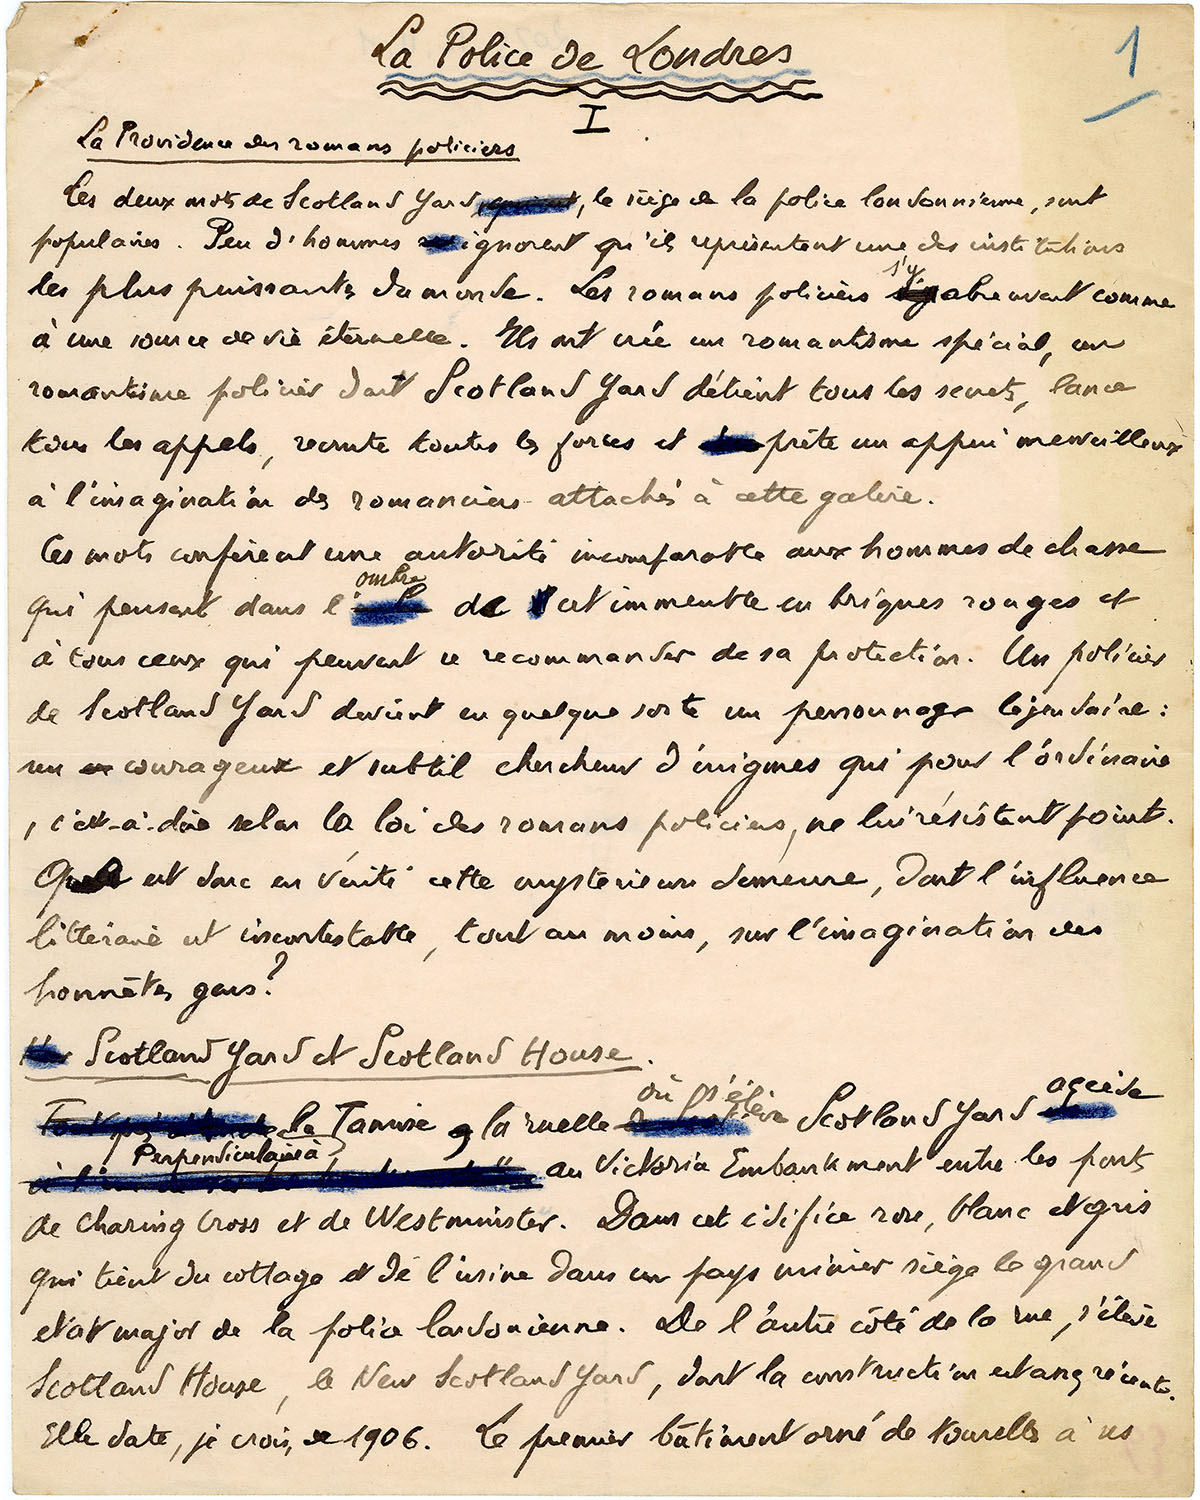 La Police de Londres
1
I
La Providence des romans policiers
Les deux mots de Scotland Yard, le siège de la police londonnienne, sont
populaires. Peu d'hommes ignorent qu'ils représentent une des institutions
les plus puissantes du monde. Les romans policiers s'y abreuvent comme
à une source de vie éternelle. Ils ont créé un romantisme spécial, un
romantisme policier dont Scotland Yard détient tous les secrets, lance
tous les appels, recrute toutes les forces et prête un appui merveilleux
à l'imagination des romanciers attachés à cette galère.
Ces mots confèrent une autorité incomparable aux hommes de chasse
qui pensent dans l'ombre de cet immeuble en briques rouges et
à tous ceux qui peuvent se recommander de sa protection. Un policier
de Scotland Yard devient en quelque sorte un personnage légendaire :
un courageux et subtil chercheur d'énigmes qui pour l'ordinaire
, c'est-à-dire selon la loi des romans policiers, ne lui résistent point.
Quelle est donc en vérité cette mystérieuse demeure, dont l'influence
littéraire est incontestable, tout au moins, sur l'imagination des
honnêtes gens ?
Scotland Yard et Scotland House.
la Tamise, la ruelle où s'élève Scotland Yard accède
Perpendiculaire à
au Victoria Embankment entre les ponts
de Charing Cross et de Westminster. Dans cet édifice rose, blanc et gris
qui tient du cottage et de l'usine dans un pays minier siège le grand
état major de la police londonienne. De l'autre côté de la rue, s'élève
Scotland House, le New Scotland Yard, dont la construction est assez récente.
Elle date, je crois, de 1906. Le premier bâtiment orné de tourelles à ses